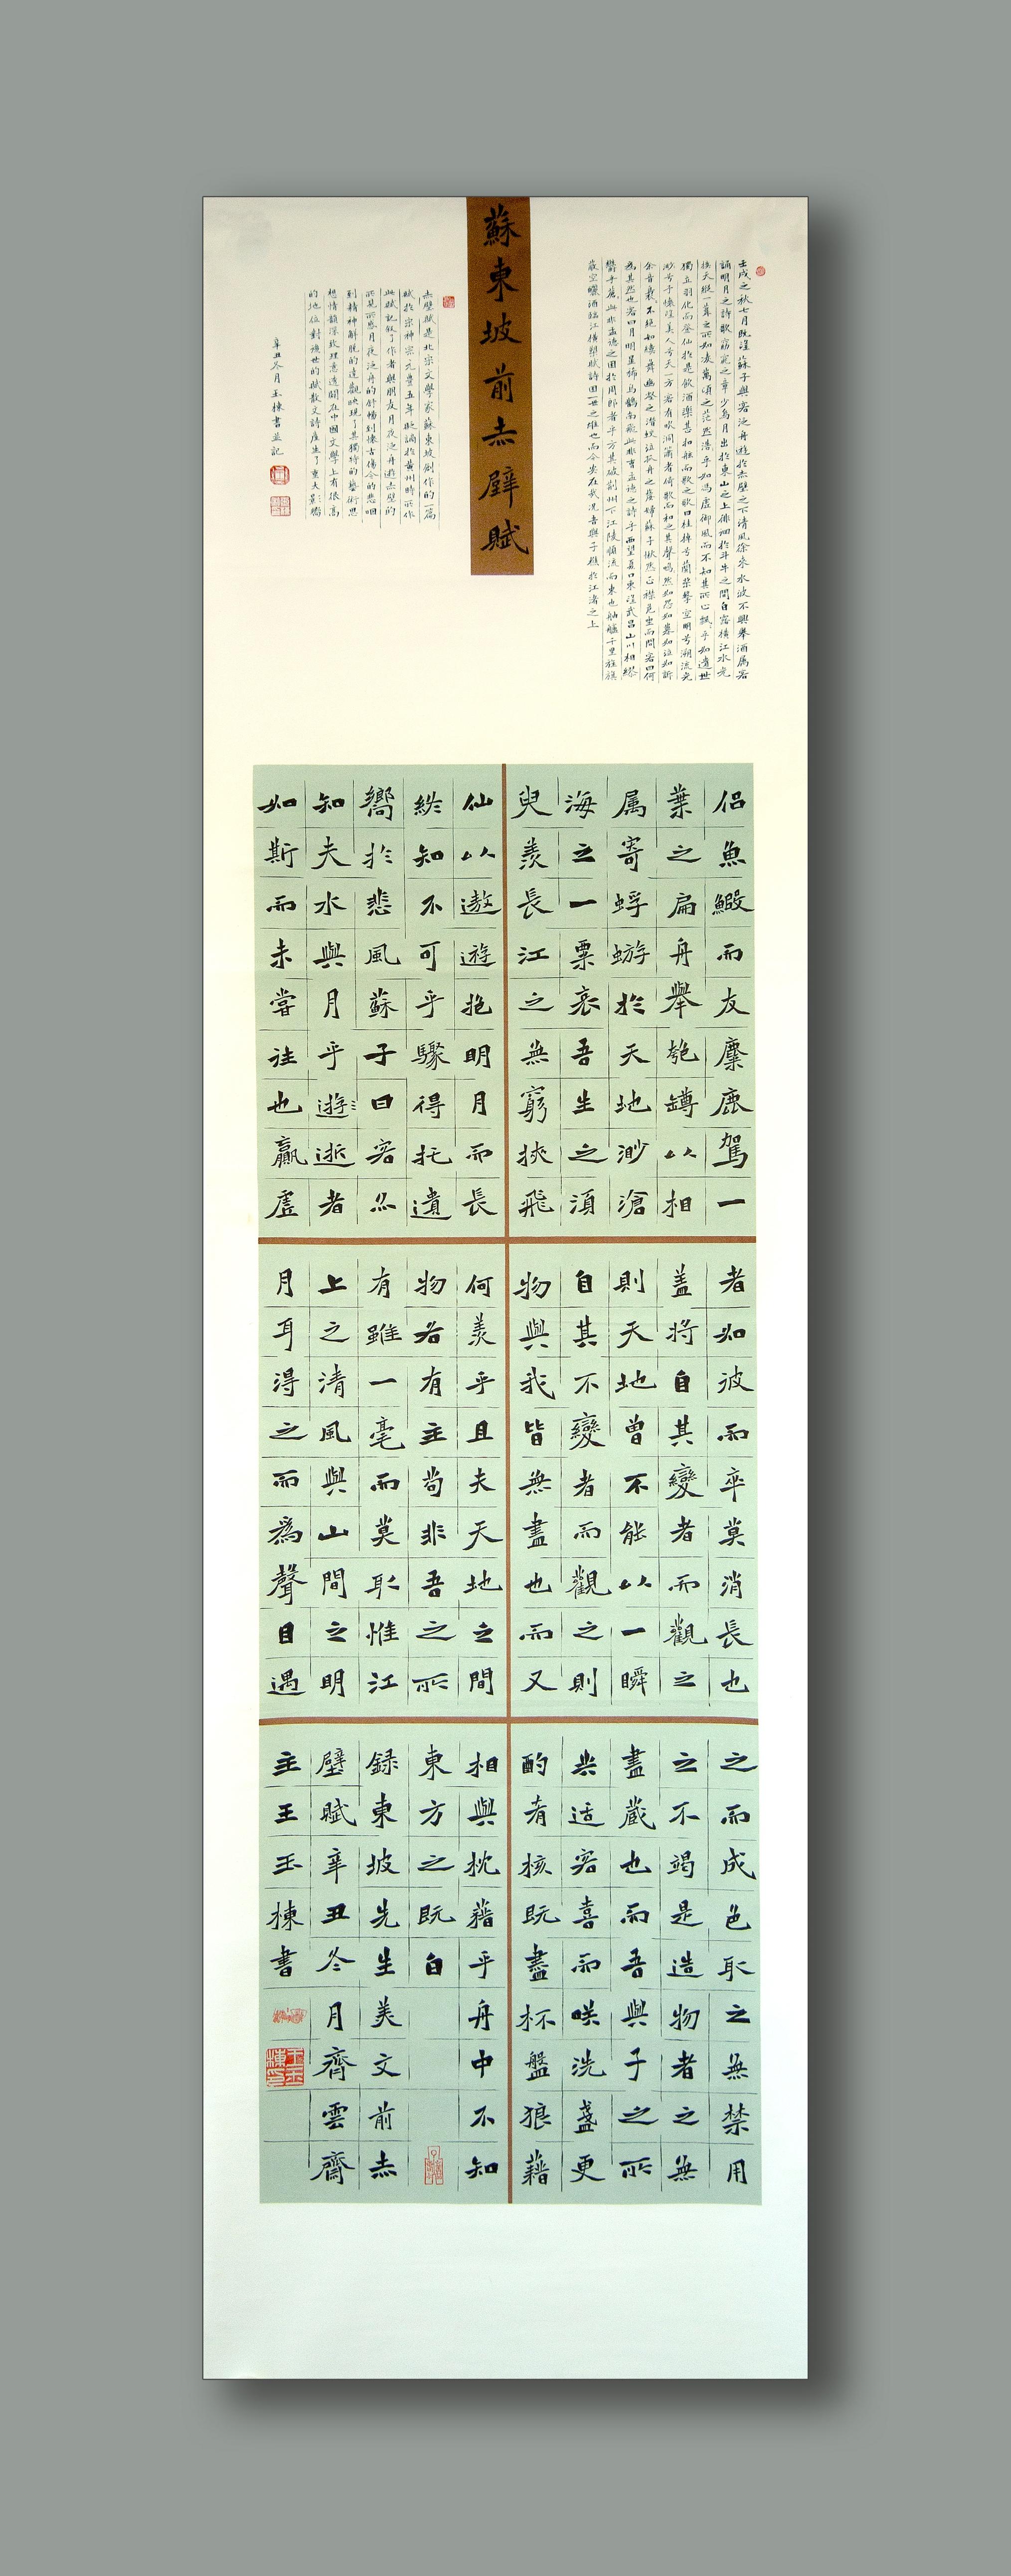 蘇東坡前赤壁賦
壬戌之秋七月既望蘇子與客泛舟遊於赤壁之下清風徐來水波不興舉酒属客
誦明月之詩歌窈窕之章少焉月出於東山之上徘徊於斗牛之間白露橫江水光
接天縱一葦之所如凌萬頃之茫然浩乎如馮虛御風而不知其所止飄乎如遺世
獨立羽化而登仙於是飲酒樂甚扣舷而歌之歌曰桂棹兮蘭槳擊空明兮溯流光
渺兮予懷望美人兮天一方客有吹洞簫者倚歌而和之其聲嗚然如怨如慕如泣如訴
余音裊不絕如縷舞幽壑之潛蛟泣孤舟之嫠婦蘇子愀然正襟危坐而問客曰何
為其然也客曰月明星稀烏鵲南飛此非曹孟德之詩乎西望夏口東望武昌山川相繆
鬱乎蒼此非孟德之困於周郎者乎方其破荊州下江陵順流而東也舳艫千里旌旗
蔽空釃酒臨江橫槊賦詩固一世之雄也而今安在哉況吾與子樵於江渚之上
赤壁賦是北宋文學家蘇東坡創作的一篇
賦於宋神宗元豐五年貶謫於黃州時所作
此賦記叙了作者與朋友月夜泛舟遊赤壁的
所見所感月夜泛舟的舒暢到懷古傷今的悲咽
到精神解脫的達觀映現了其獨特的藝術思
想情韻深致理意透闢在中國文學上有很高
的地位對後世的賦散文詩產生了重大影響
辛丑冬月玉棟書並記
侶魚鰕而友麋鹿駕一
葉之扁舟舉匏罇以相
属寄蜉蝣於天地渺滄
海之一粟哀吾生之須
臾羨長江之無窮挾飛
仙以遨遊抱明月而長
終知不可乎驟得托遺
嚮於悲風蘇子曰客亦
知夫水與月乎遊逝者
如斯而未嘗往也贏虛
者如彼而卒莫消長也
蓋將自其變者而觀之
則天地曾不能以一瞬
自其不變者而觀之則
物與我皆無盡也而又
何羨乎且夫天地之間
物各有主苟非吾之所
有雖一毫而莫取惟江
上之清風與山間之明
月耳得之而為聲目遇
之而成色取之無禁用
之不竭是造物者之無
盡藏也而吾與子之所
共适客喜而咲洗盞更
酌肴核既盡杯盤狼藉
相與枕藉乎舟中不知
東方之既白
録東坡先生美文前赤
壁賦辛丑冬月齊雲齋
主王玉棟書